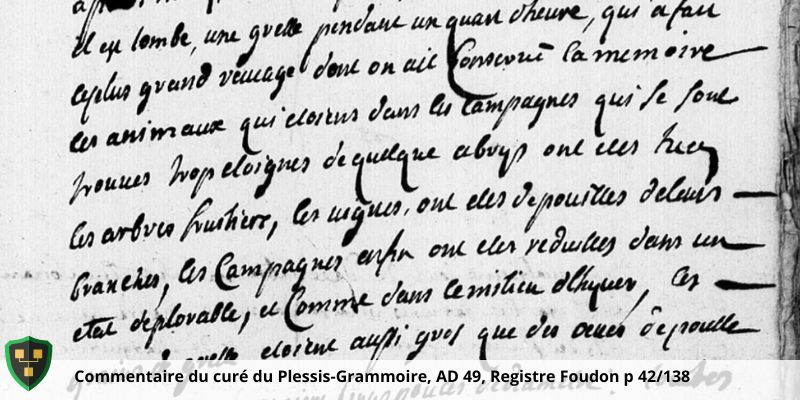 il est tombé, une grelle pendant un quart d'heure, qui a fait
le plus grand ravage dont on ait Conservé la memoire
les animaux qui etoient dans les Campagnes qui se sont
trouves trop eloignes de quelque abrys ont etes tues
les arbres fruitiers, les vignes, ont etes depouilles de leurs
branches, les Campagnes enfin ont etes reduittes dans un
etat deplorable, et Comme dans le milieu d'hyver, les
grelle etoient aussi gros que des oeufs de poulle
Commentaire du curé du Plessis-Grammoire, AD 49, Registre Foudon p 42/138